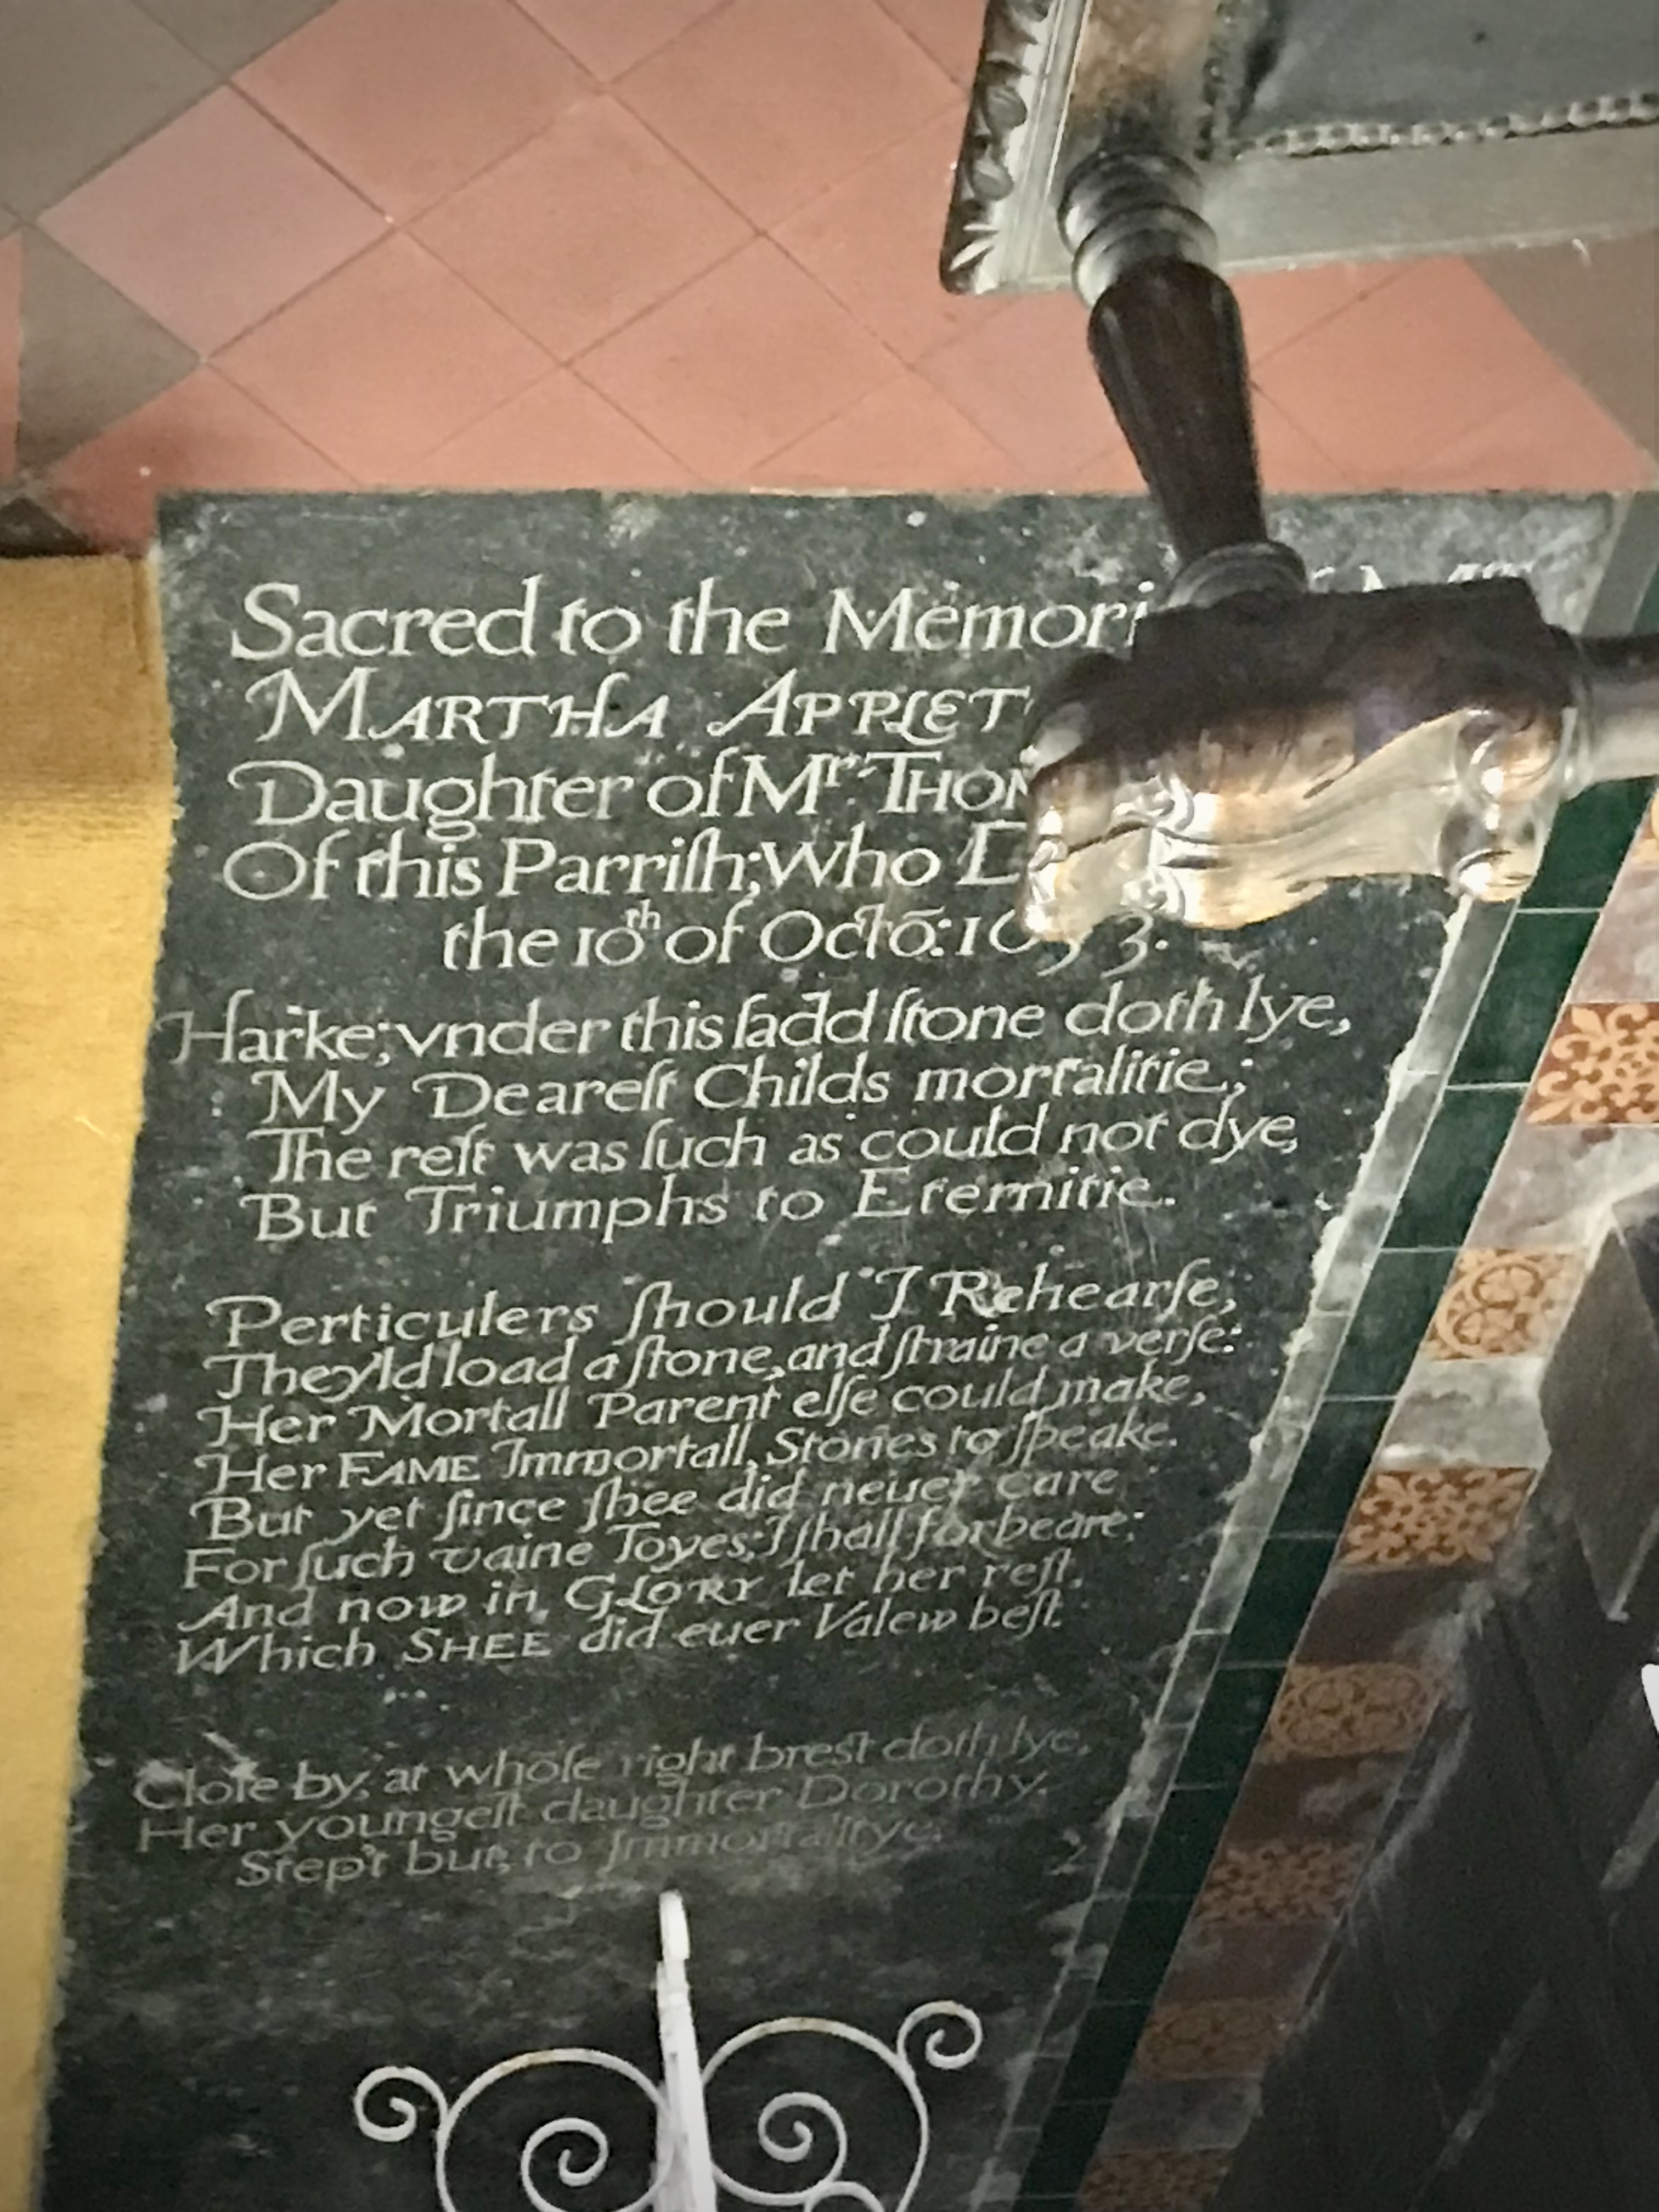 Sacred to the Memori
MARTHA APPLET
Daughter of Mr. THOM
Of this Parriſh; Who
the 10th of Octō: 16 3.
Harke; vnder this ſadd ſtone doth lye,
My Deareſt Childs mortalitie;
The reſt was ſuch as could not dye,
But Triumphs to Eternitie.
Perticulers ſhould I Rehearſe,
They'ld load a ſtone, and ſtraine a verſe:
Her Mortall Parent elſe could make,
Her FAME Immortall, Stories to ſpeake.
But yet ſince ſhee did neuer care
For ſuch vaine Toyes; I ſhall forbeare:
And now in GLORY let her reſt,
Which SHEE did euer Valew beſt.
Cloſe by, at whoſe right brest doth lye,
Her youngeſt daughter Dorothy.
Step't but to Immortallitye.